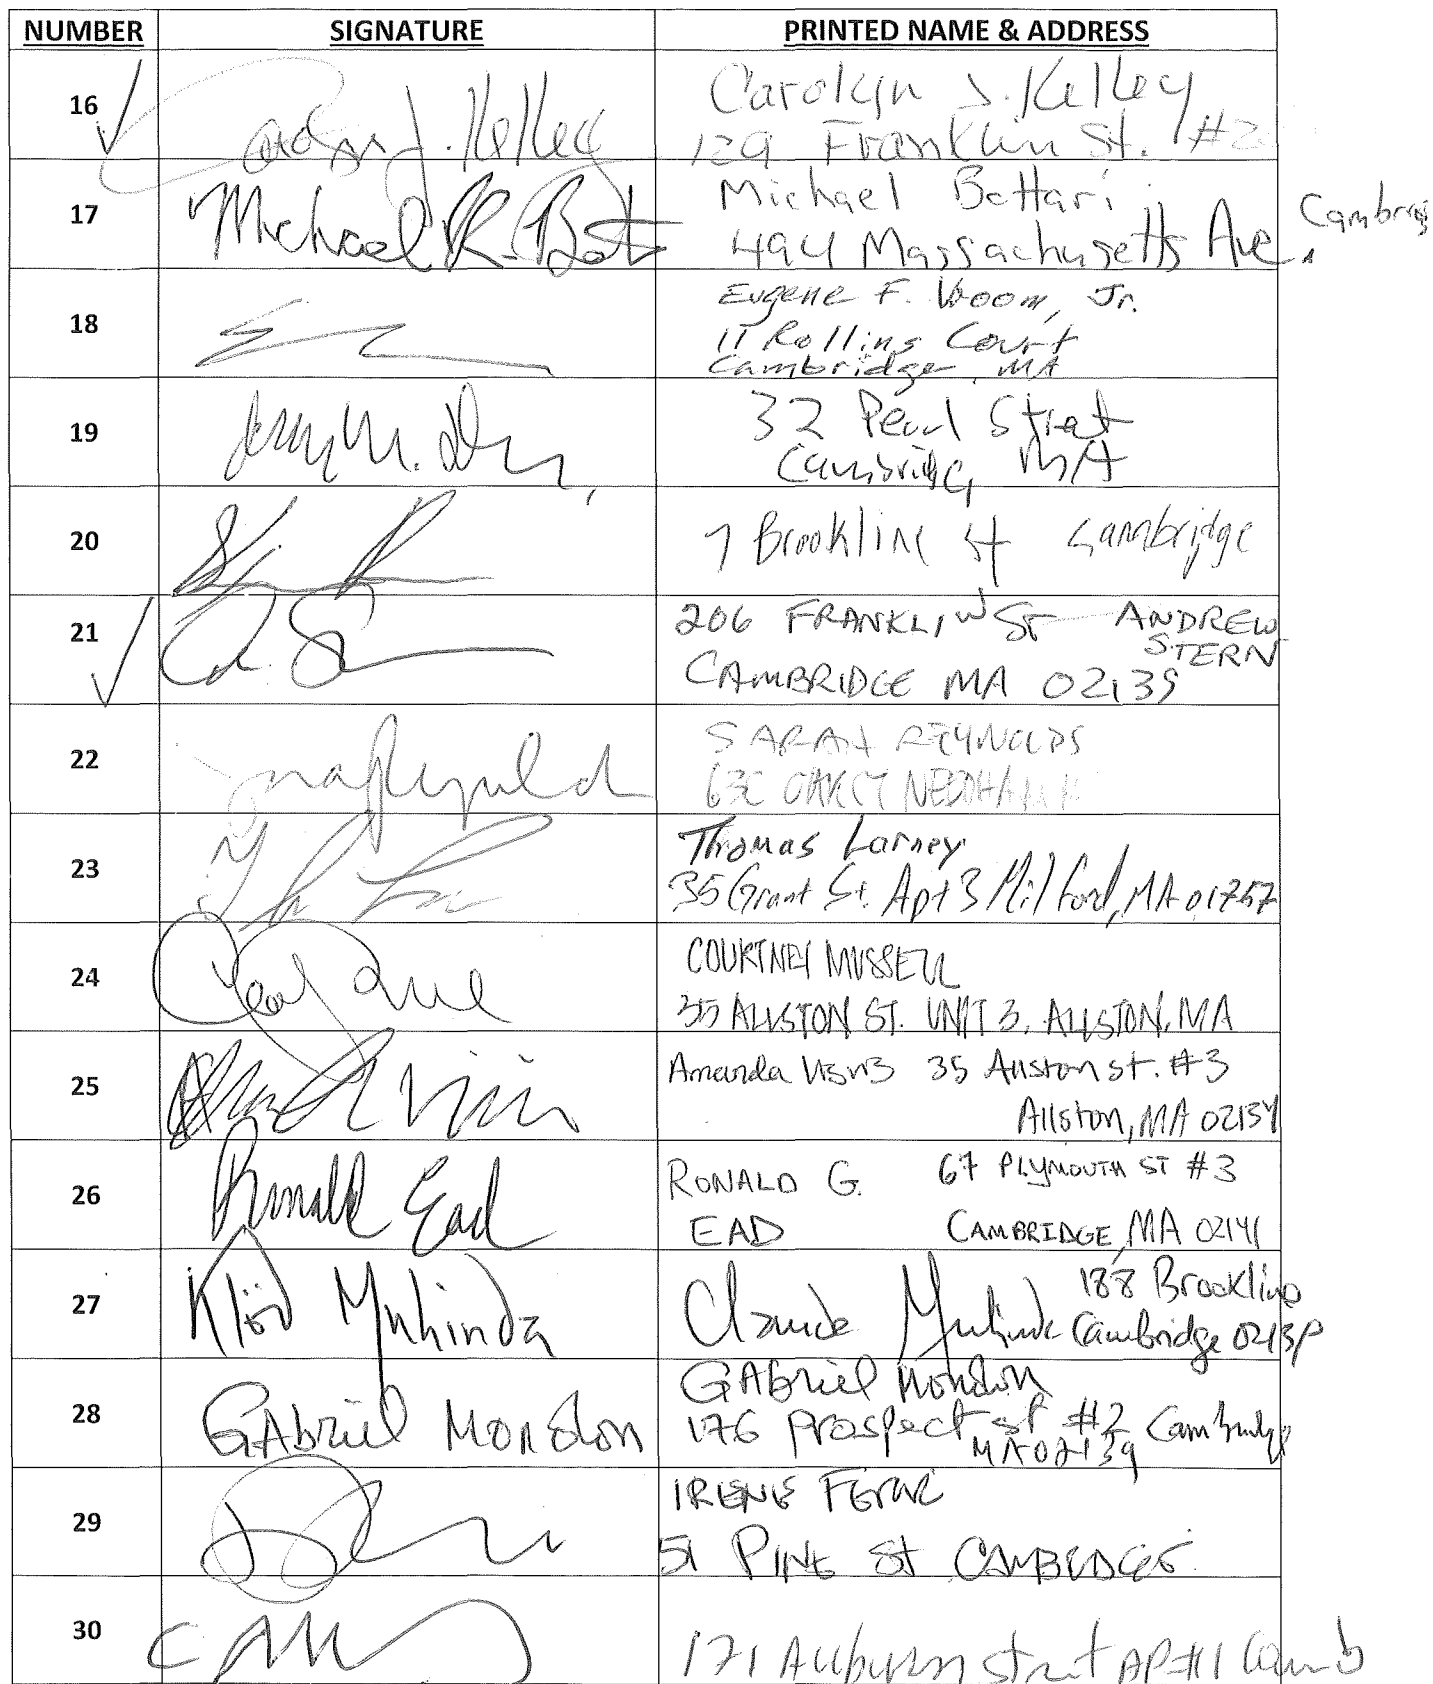 NUMBER SIGNATURE PRINTED NAME & ADDRESS
16 J. Kelley Carolyn J. Kelley
129 Franklin St. #2
17 Michael R. Michael Bottari
494 Massachusetts Ave, Cambridg
18 Eugene F. Vroom, Jr.
11 Rollins Court
Cambridge, MA
19 32 Pearl Street
Cambridge, MA
20 7 Brookline St Cambridge
21 206 FRANKLIN ST ANDREW
STERN
CAMBRIDGE MA 02139
22 SARAH REYNOLDS
NEEDHAM
23 Thomas Larney
35 Grant St. Apt 3 Milford, MA 01757
24 COURTNEY MUSSELL
35 ALLSTON ST. UNIT 3, ALLSTON, MA
25 Amanda 35 Allston st. #3
Allston, MA 02134
26 Ronald Ead RONALD G. 67 PLYMOUTH ST #3
EAD CAMBRIDGE, MA 02141
27 Klöd Muhinda Claude Muhinda 188 Brookline
Cambridge 02139
28 GAbriel Mondon GAbriel Mondon
176 Prospect st #2 Cambridge
MA 02139
29 IRENE
51 PINE St
30 171 Auburn Street AP#1 Camb